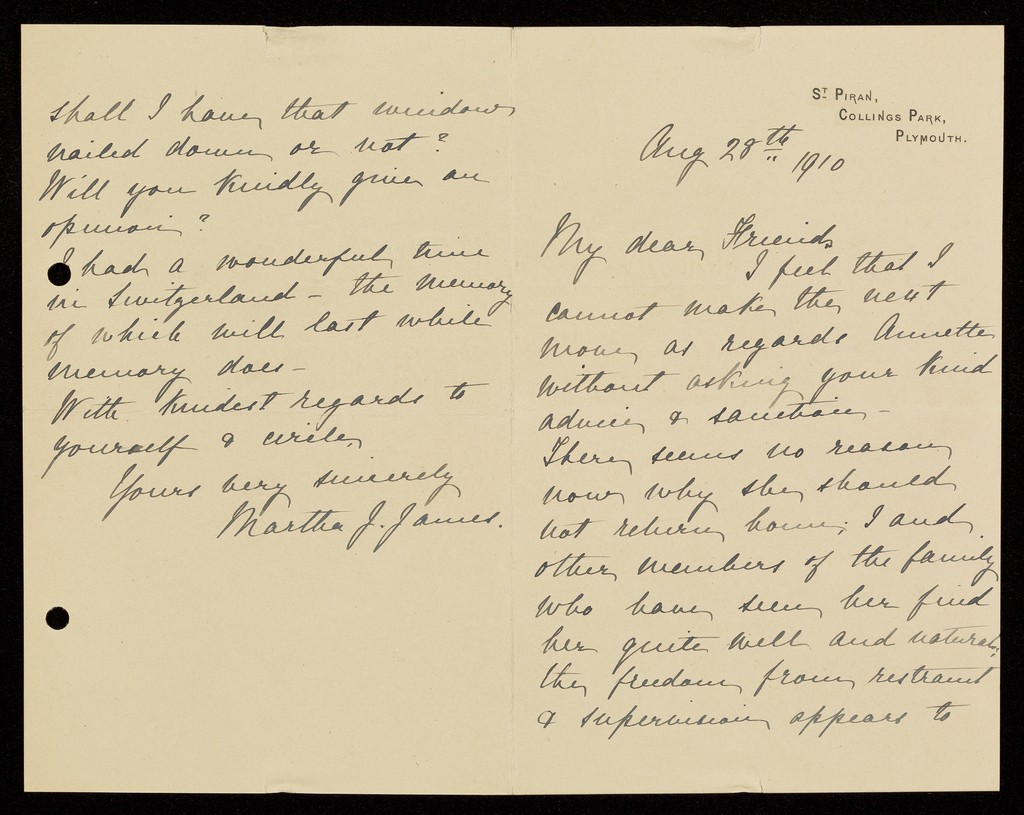 ST PIRAN,
COLLINGS PARK,
PLYMOUTH.
Aug 28th 1910
My dear Friends
I feel that I
cannot make the next
move as regards Annette
without asking your kind
advice & sanction -
There seems no reason
now why she should
not return home; I and
other members of the family
who have seen her find
her quite well and natural;
the freedom from restraint
& supervision appears to
shall I have that window
nailed down or not?
Will you kindly give an
opinion?
I had a wonderful time
in Switzerland - the memory
of which will last while
memory does -
With kindest regards to
yourself & circle,
Yours very sincerely
Martha J. James.